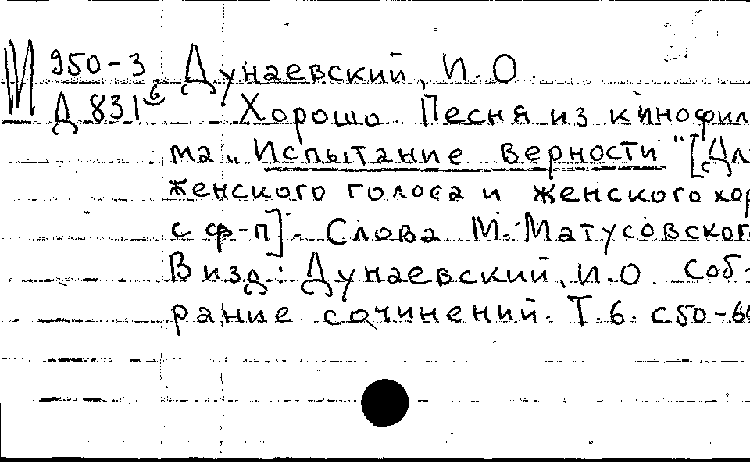 М 950-3 Дунаевский, И.О.
Д 831 Хорошо. Песня из кинофил
ма „Испытание верности" [Дл
женского голоса и женского хор
с ф-п]. Слова М. Матусовског
В изд: Дунаевский, И.О. Соб-
рание сочинений. Т.6. с50-60